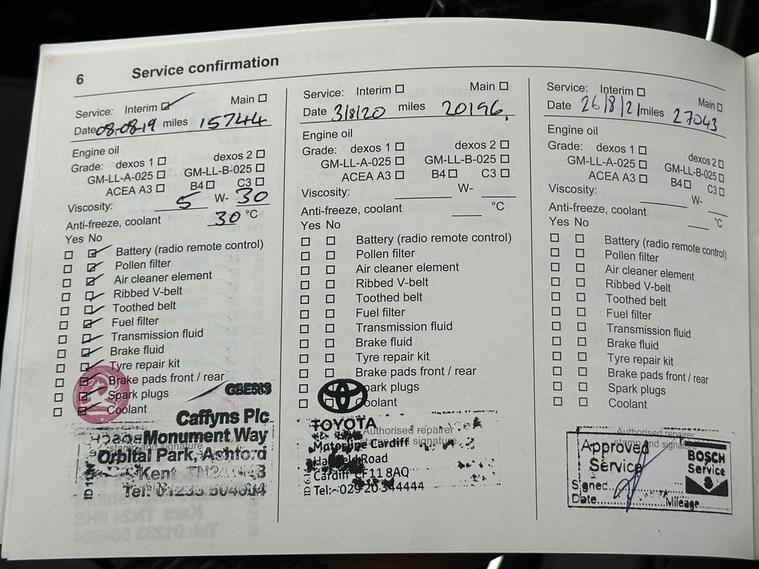 6 Service confirmation
Service: Interim Main
Date 08.08.19 miles 15744
Engine oil
Grade: dexos 1 dexos 2
GM-LL-A-025 GM-LL-B-025
ACEA A3 B4 C3
Viscosity: 5 W- 30
Anti-freeze, coolant 30 °C
Yes No
Battery (radio remote control)
Pollen filter
Air cleaner element
Ribbed V-belt
Toothed belt
Fuel filter
Transmission fluid
Brake fluid
Tyre repair kit
Brake pads front / rear
Spark plugs
Coolant
Caffyns Plc
Monument Way
Orbital Park, Ashford
Kent
Tel: 01233 504604
Service: Interim Main
Date 3/8/20 miles 20196
Engine oil
Grade: dexos 1 dexos 2
GM-LL-A-025 GM-LL-B-025
ACEA A3 B4 C3
Viscosity: W-
Anti-freeze, coolant °C
Yes No
Battery (radio remote control)
Pollen filter
Air cleaner element
Ribbed V-belt
Toothed belt
Fuel filter
Transmission fluid
Brake fluid
Tyre repair kit
Brake pads front / rear
Spark plugs
Coolant
TOYOTA
Authorised repairer
stamp and signature
Cardiff
Road
Cardiff CF11 8AQ
Tel:- 029 20 344444
Service: Interim Main
Date 26/8/21 miles 27043
Engine oil
Grade: dexos 1 dexos 2
GM-LL-A-025 GM-LL-B-025
ACEA A3 B4 C3
Viscosity: W-
Anti-freeze, coolant °C
Yes No
Battery (radio remote control)
Pollen filter
Air cleaner element
Ribbed V-belt
Toothed belt
Fuel filter
Transmission fluid
Brake fluid
Tyre repair kit
Brake pads front / rear
Spark plugs
Coolant
Authorised repairer
stamp and signature
Approved
Service
BOSCH
Service
Signed
Date Mileage